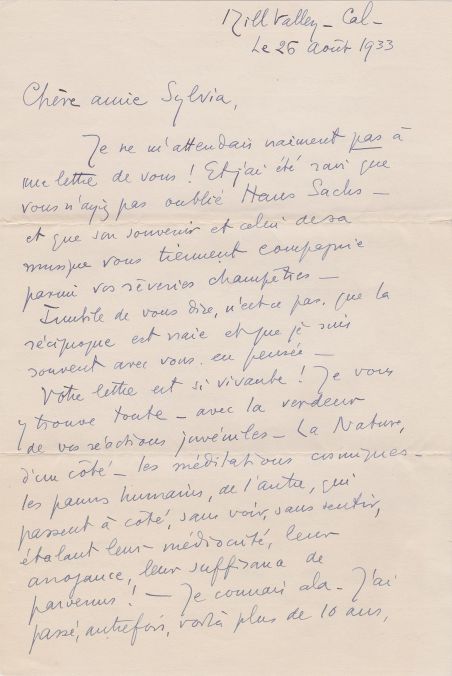 Mill Valley - Cal -
Le 26 août 1933
Chère amie Sylvia,
Je ne m'attendais vraiment pas à
une lettre de vous ! Et j'ai été ravi que
vous n'ayiez pas oublié Hans Sachs -
et que son souvenir et celui de sa
musique vous tiennent compagnie
parmi vos rêveries champêtres -
Inutile de vous dire, n'est ce pas, que la
réciproque est vraie et que je suis
souvent avec vous en pensée -
Votre lettre est si vivante ! Je vous
y trouve toute - avec la verdeur
de vos réactions juvéniles - La Nature,
d'un côté - les méditations cosmiques -
les pauvres humains, de l'autre, qui
passent à côté, sans voir, sans sentir,
étalant leur médiocrité, leur
arrogance, leur suffisance de
parvenus ! - Je connais cela - J'ai
passé, autrefois, voilà plus de 10 ans,